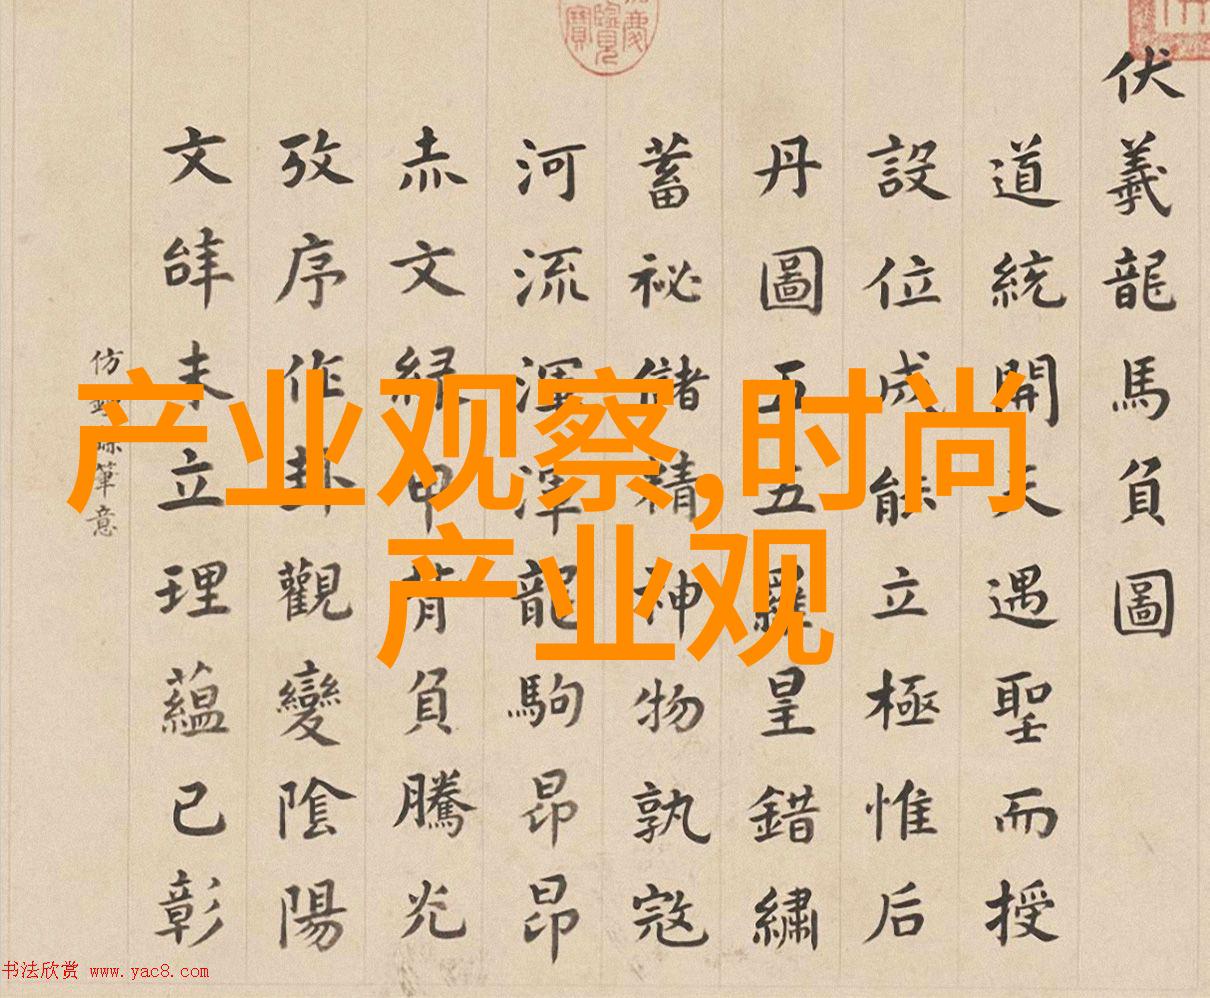 伏羲龍馬負圖
道統開天遇聖而授
設位成能立極惟后
丹圖五五羅皇錯繡
蓄祕儲精神物孰寇
河流渾渾龍駒昂昂
赤文緑甲背負騰光
攷序作卦觀變陰陽
文雖未立理蘊已彰
仿筆意
产业观察,时尚
产业观
书法欣赏 www.yac8.com